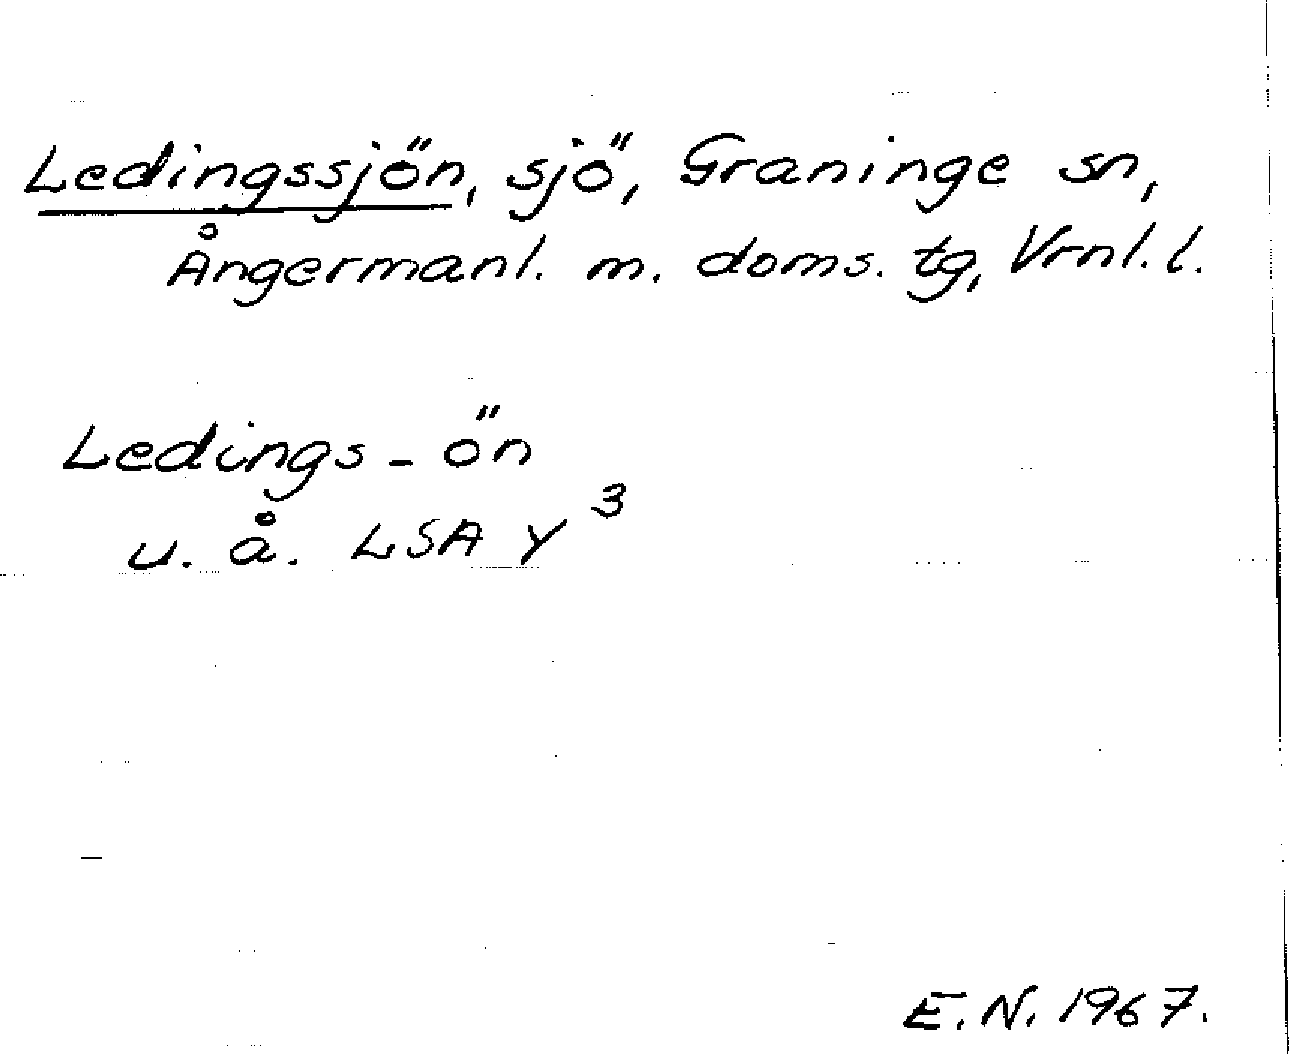 Ledingssjön, sjö, Graninge sn,
Ångermanl. m. doms. tg, Vrnl. l.
Ledings - ön
u. å. LSA Y 3
E. N. 1967.